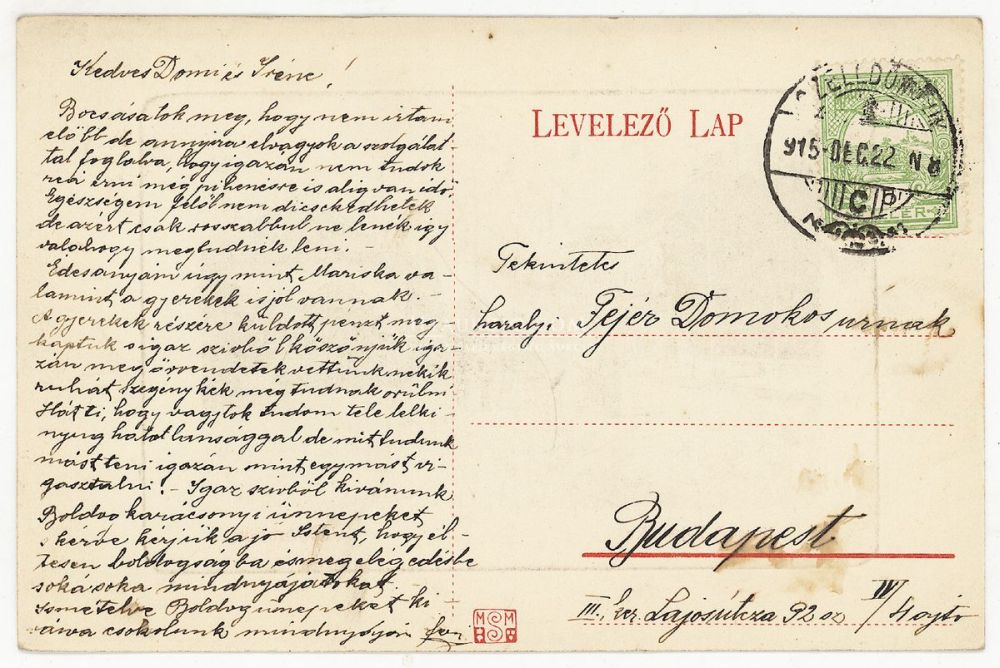 Kedves Domi és Iréne!
Bocsásatok meg, hogy nem irtam
előbb de annyira elvagyok a szolgálat-
tal foglalva, hogy igazán nem tudok
reá érni még pihenésre is alig van idő
Egészségem felől nem dicsekedhetek
de azért csak rosszabbul ne lenék igy
valahogy megtudnék leni. –
Edesanyám úgy mint Mariska va-
lamint a gyerekek is jól vannak. –
A gyerekek részére küldött pénzt meg
kaptuk s igaz szivből köszönjük iga-
zán meg örvendetek vettünk nekik
ruhát szegénykék még tudnak örülni
Hát ti, hogy vagytok tudom tele lelki-
nyug hatatlansággal de mit tudunk
mást teni igazán mint egymást vi-
gasztalni! – Igaz szivből kivánunk
Boldog karácsonyi ünnepeket
s kérve kerjük a jó Istent, hogy él-
tesen boldogságba és megelégedésbe
soká soka mindnyájatokat –
Ismételve Boldog ünnepeket ki-
vánva csokolunk mindnyájan
LEVELEZŐ LAP
CZELLDÖMÖLK
915 DEC. 22 N 8
Tekintetes
haralyi Fejér Domokos urnak
Budapest
III. ker. Lajosútcza 92 sz IV/4 ajtó
MSM